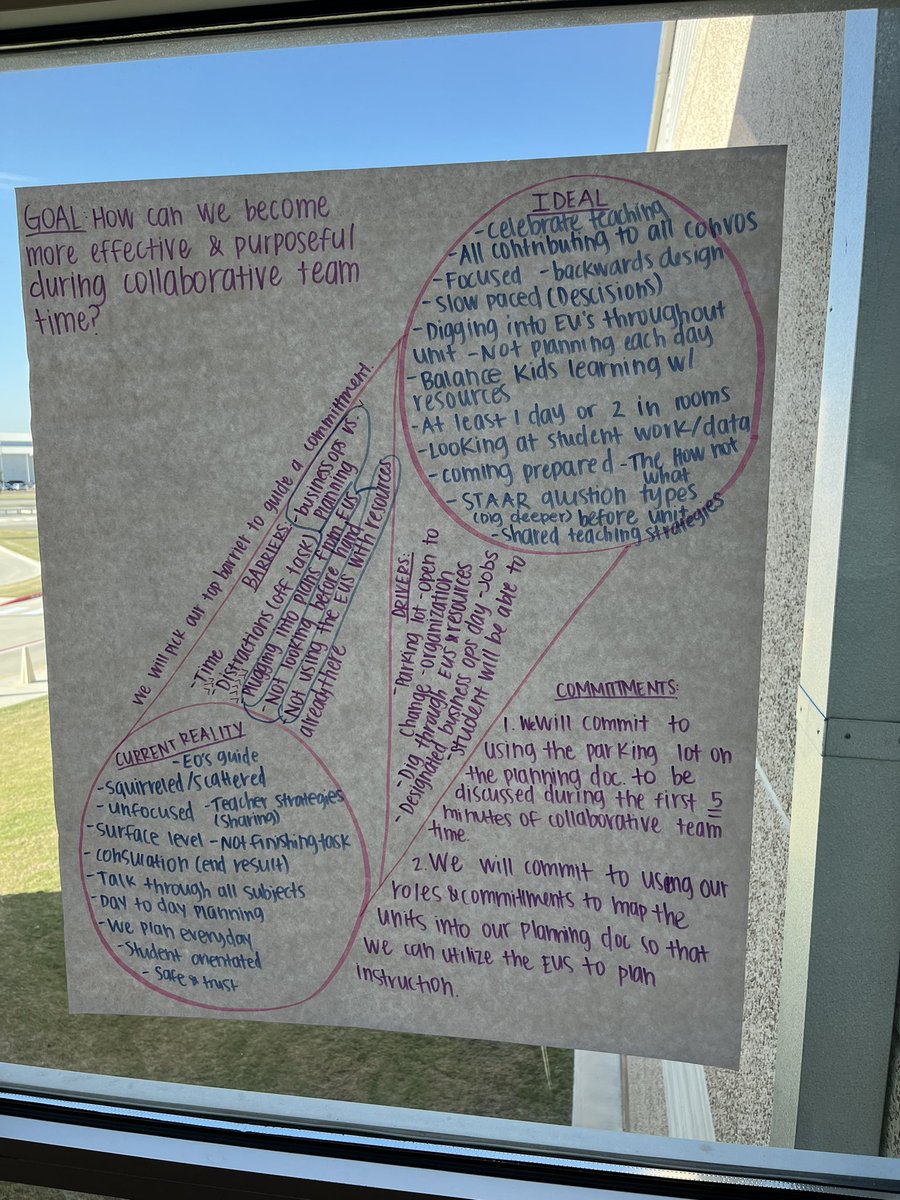 GOAL: How can we become
more effective & purposeful
during collaborative team
time?
IDEAL
- Celebrate teaching
- All contributing to all convos
- Focused - backwards design
- Slow paced (Descisions)
- Digging into EU's throughout
unit - Not planning each day
- Balance Kids learning w/
resources
- At least 1 day or 2 in rooms
- Looking at student work/data
- coming prepared - The How not
what
- STAAR question types
(Dig deeper) before unit
- Shared teaching strategies
We will pick our top barrier to guide a committment.
BARRIERS: - business ops vs.
planning
- Time
Distractions (off task)
Plugging into plans from EUs
- Not looking before hand
Not using the EUs with resources
already there
DRIVERS:
- Parking lot - open to
change - organization
- Dig through EUs & resources
- Designated business ops day - Jobs
- Student will be able to
CURRENT REALITY
- EO's guide
- Squirreled/scattered
- unfocused - Teacher strategies
(Sharing)
- surface level - Not finishing task
- consulation (end result)
- Talk through all subjects
- Day to day planning
- We plan everyday
- Student orientated
- Safe & trust
COMMITMENTS:
1. We will commit to
using the parking lot on
the planning doc. to be
discussed during the first 5
minutes of collaborative team
time.
2. We will commit to using our
roles & commitments to map the
units into our planning doc so that
we can utilize the EUS to plan
instruction.